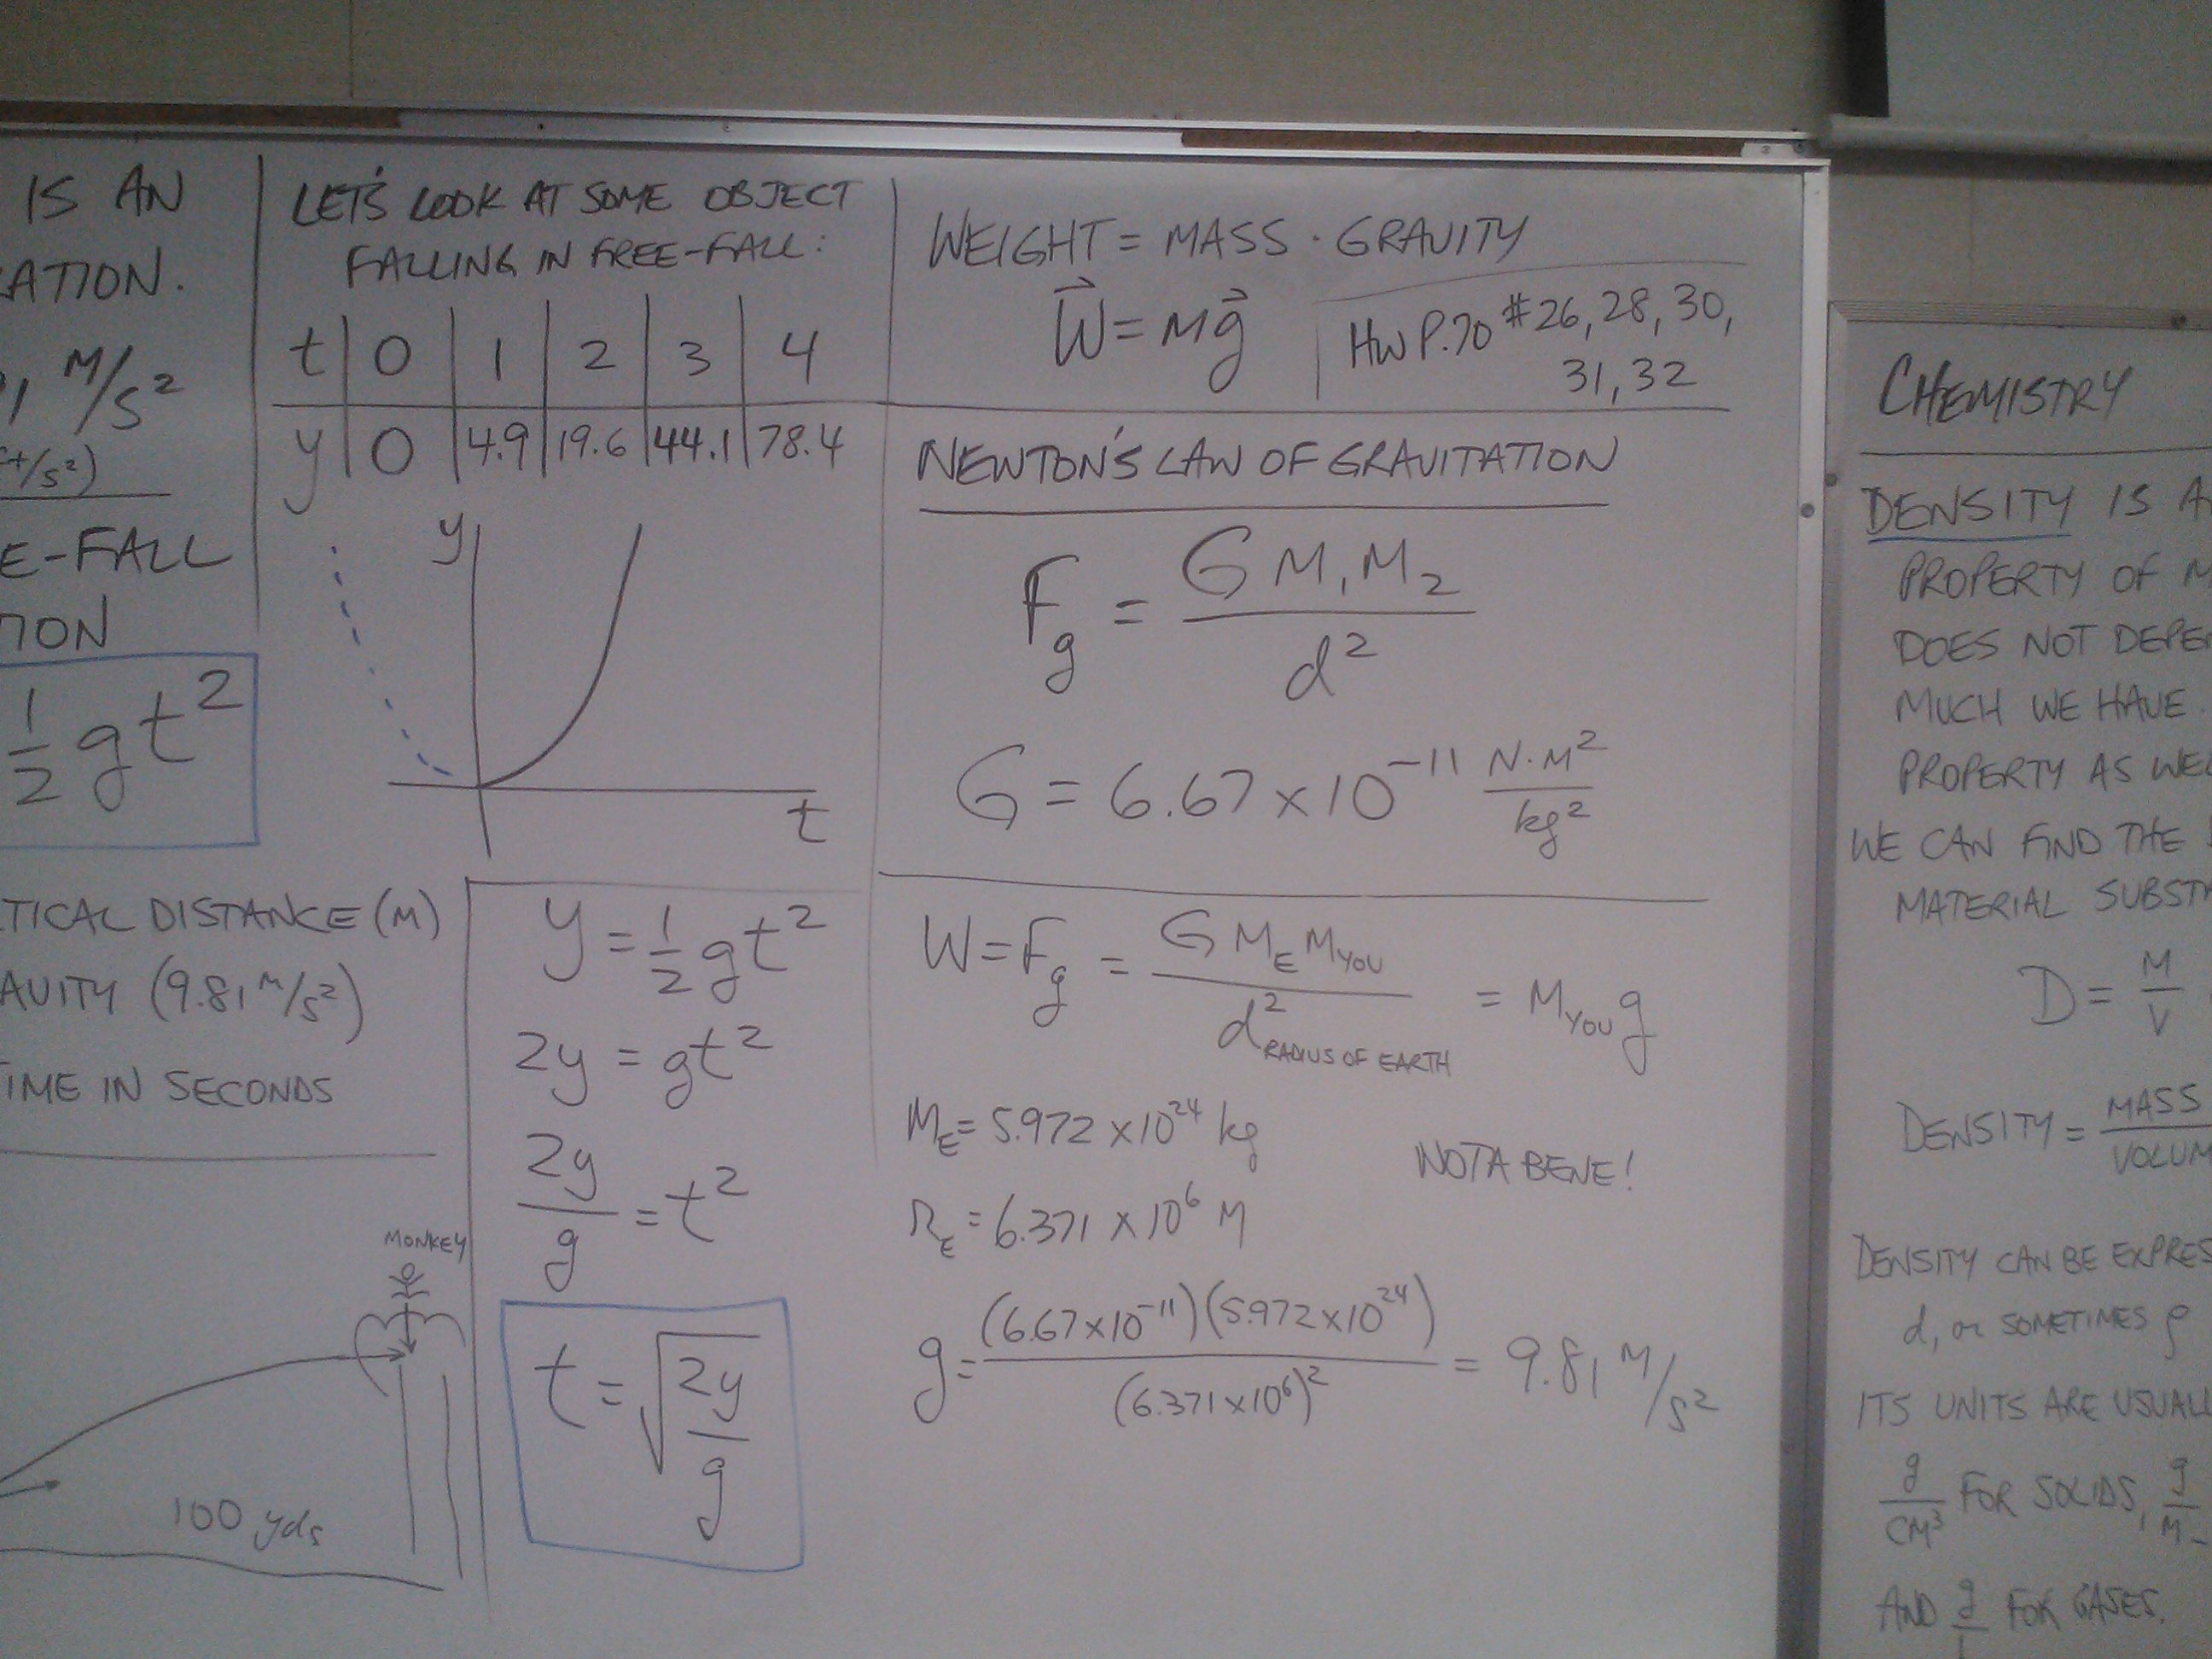 IS AN
ATION.
1 M/S²
/S²)
E-FALL
TION
1/2 gt²
TICAL DISTANCE (M)
AVITY (9.81 M/S²)
TIME IN SECONDS
MONKEY
100 yds
LET'S LOOK AT SOME OBJECT
FALLING IN FREE-FALL:
t | 0 | 1 | 2 | 3 | 4
y | 0 | 4.9 | 19.6 | 44.1 | 78.4
y
t
y = 1/2 gt²
2y = gt²
2y/g = t²
t = √(2y/g)
WEIGHT = MASS · GRAVITY
W⃗ = Mg⃗
HW P.70 #26, 28, 30,
31, 32
NEWTON'S LAW OF GRAVITATION
F_g = G M₁ M₂ / d²
G = 6.67 × 10⁻¹¹ N·M²/kg²
W = F_g = G M_E M_YOU / d²_RADIUS OF EARTH = M_YOU g
M_E = 5.972 × 10²⁴ kg
NOTA BENE!
R_E = 6.371 × 10⁶ M
g = (6.67 × 10⁻¹¹)(5.972 × 10²⁴) / (6.371 × 10⁶)² = 9.81 M/S²
CHEMISTRY
DENSITY IS A
PROPERTY OF M
DOES NOT DEPE
MUCH WE HAVE.
PROPERTY AS WEL
WE CAN FIND THE
MATERIAL SUBST
D = M/V
DENSITY = MASS/VOLUM
DENSITY CAN BE EXPRES
d, or SOMETIMES ρ
ITS UNITS ARE USUALL
g/CM³ FOR SOLIDS, g/M
AND g/ FOR GASES.